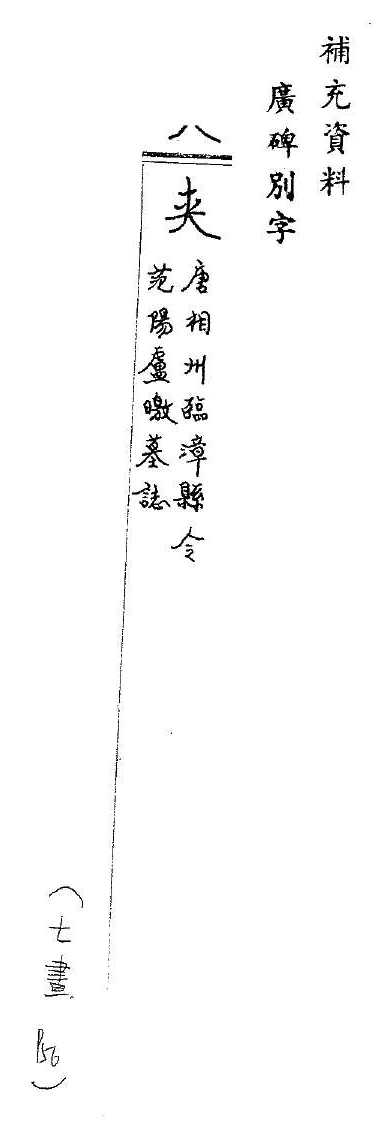 補充資料
廣碑別字
八
夾
唐相州臨漳縣令
范陽盧曒墓誌
(七畫 P56)